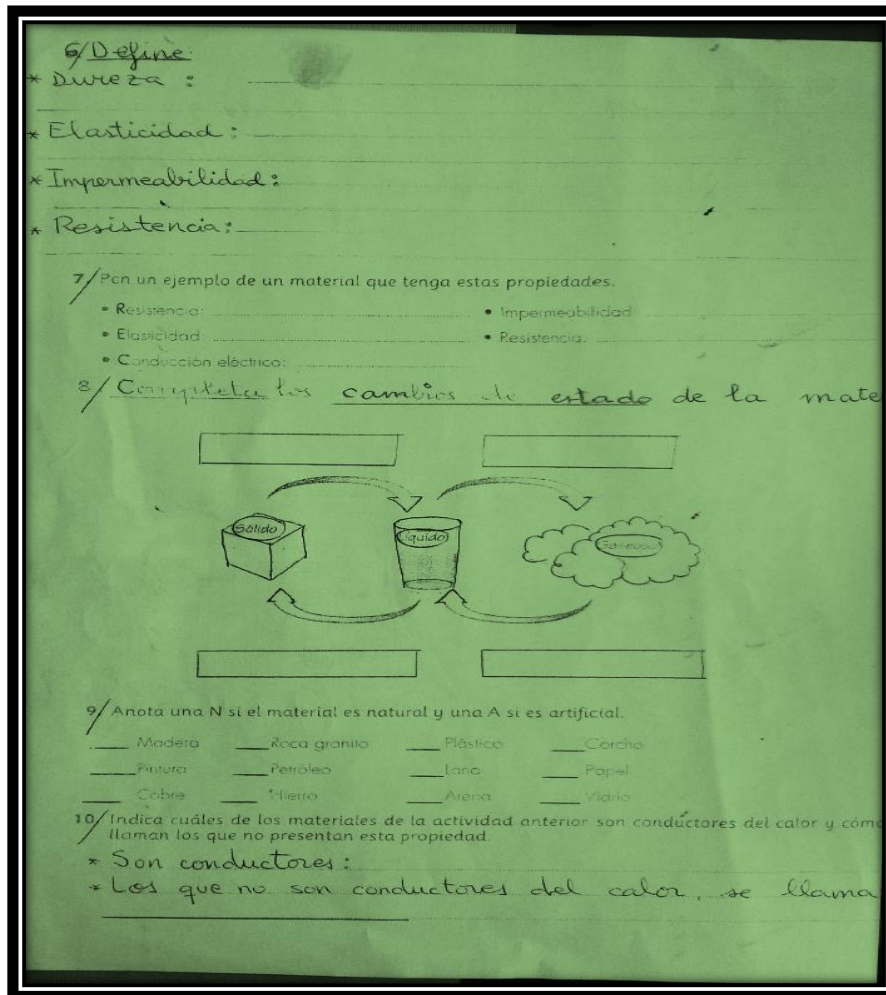 6/ Define
* Dureza :
* Elasticidad :
* Impermeabilidad :
* Resistencia :
7/ Pon un ejemplo de un material que tenga estas propiedades.
• Resistencia: • Impermeabilidad
• Elasticidad: • Resistencia:
• Conducción eléctrica:
8/ Completa los cambios de estado de la mate
Sólido Líquido Gaseoso
9/ Anota una N si el material es natural y una A si es artificial.
Madera Roca granito Plástico Corcho
Pintura Petróleo Lana Papel
Cobre Hierro Arena Vidrio
10/ Indica cuáles de los materiales de la actividad anterior son conductores del calor y cómo
llaman los que no presentan esta propiedad.
* Son conductores :
* Los que no son conductores del calor, se llama